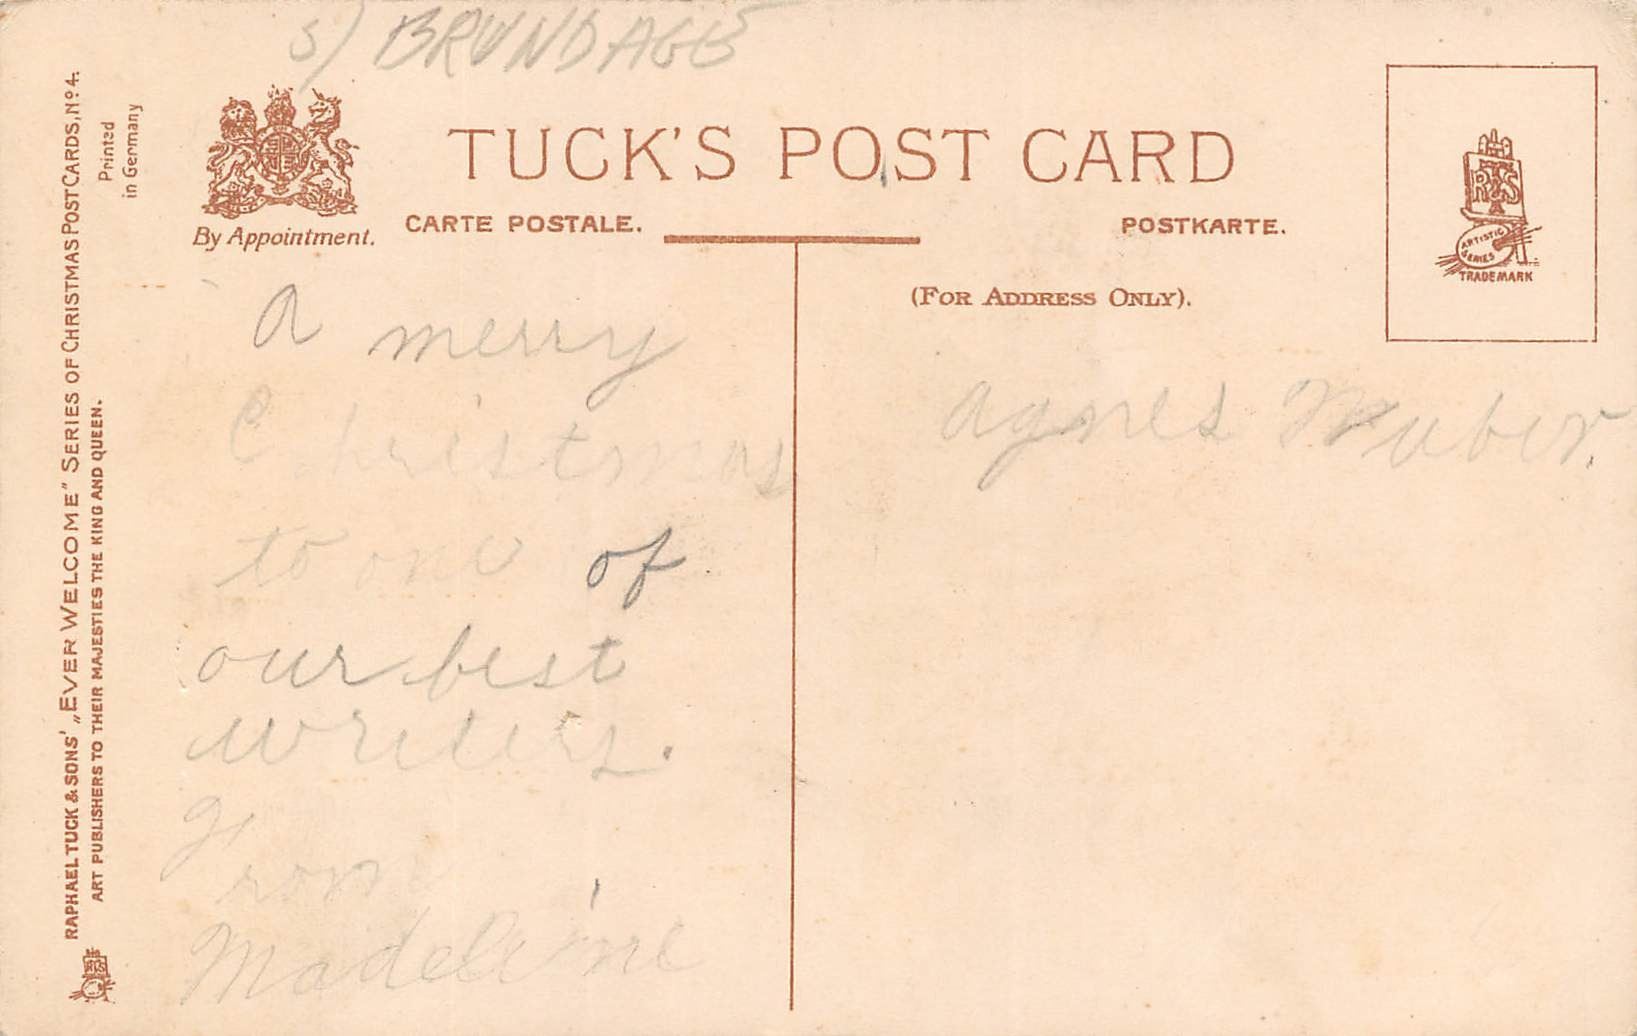 S) BRUNDAGE
TUCK'S POST CARD
By Appointment.
CARTE POSTALE.
POSTKARTE.
(FOR ADDRESS ONLY).
R T S
ARTISTIC
SERIES
TRADEMARK
RAPHAEL TUCK & SONS' „EVER WELCOME" SERIES OF CHRISTMAS POSTCARDS, Nº 4.
ART PUBLISHERS TO THEIR MAJESTIES THE KING AND QUEEN.
Printed
in Germany
A merry
Christmas
to one of
our best
writers.
From
Madeleine
Agnes